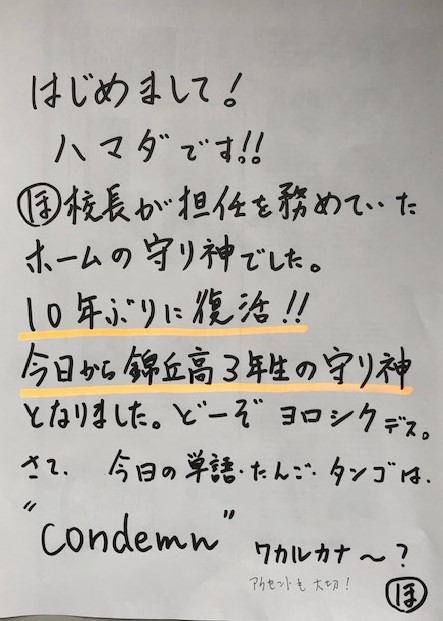 はじめまして!
ハマダです!!
ほ校長が担任を務めていた
ホームの守り神でした。
10年ぶりに復活!!
今日から錦丘高3年生の守り神
となりました。どーぞ ヨロシクデス。
さて、 今日の単語・たんご・タンゴは、
"condemn" ワカルカナ〜?
アクセントも大切!
ほ